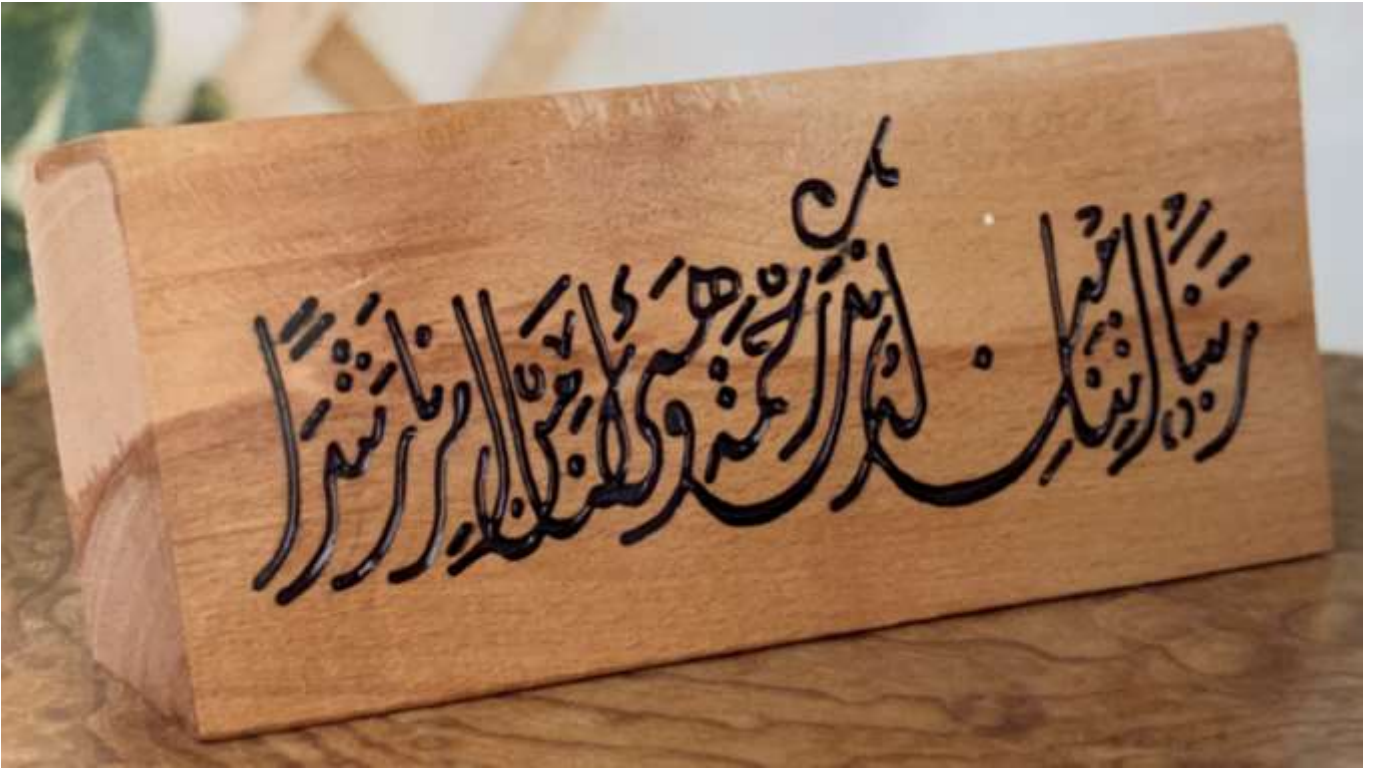 ربنا آتنا من لدنك رحمة وهيئ لنا من أمرنا رشدا